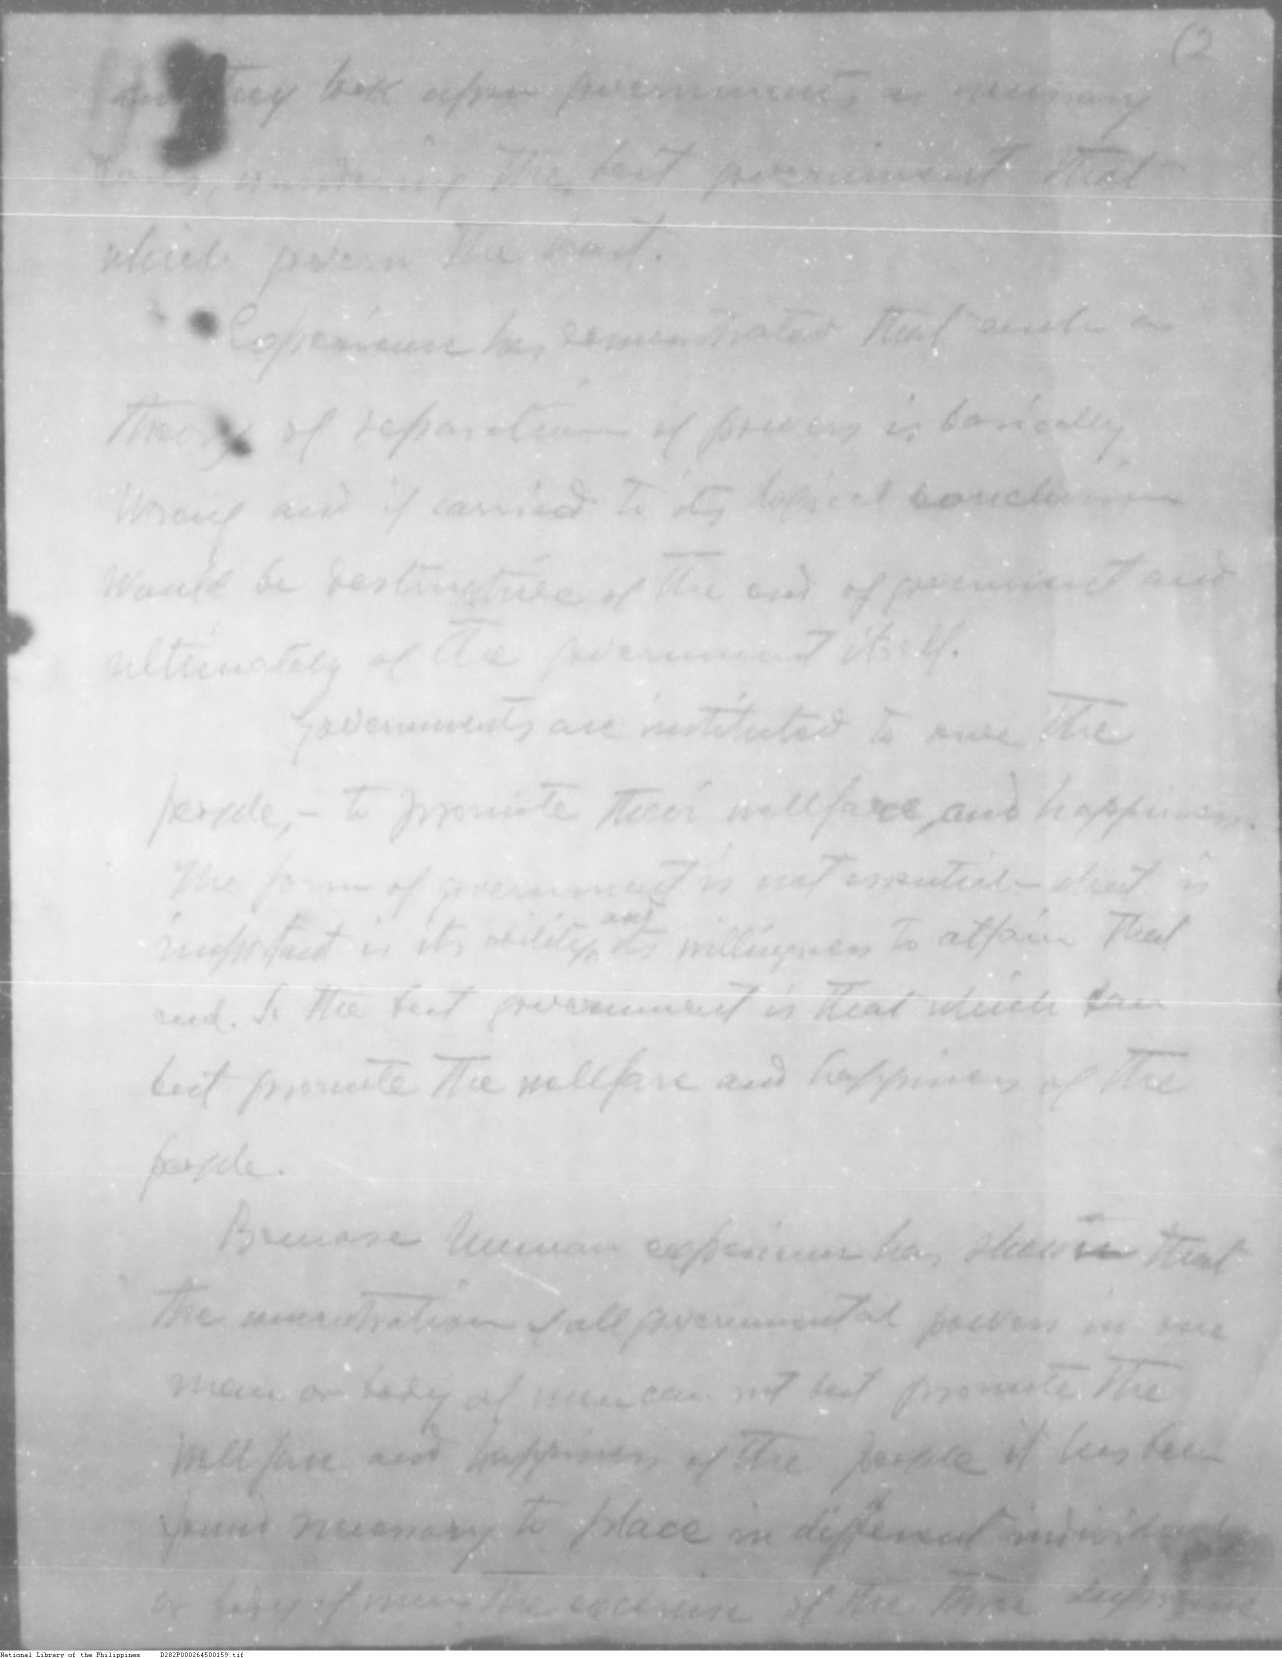 (2
they look upon governments as necessary
the best government that
which govern the least.
Experience has demonstrated that such a
theory of separation of powers is basically
wrong and if carried to its logical conclusion
would be destructive of the end of government and
ultimately of the government itself.
Governments are instituted to serve the
people, - to promote their wellfare, and happiness.
The form of government is not essential - what is
important is its ability, and its willingness to attain that
end. So the best government is that which can
best promote the wellfare and happiness of the
people.
Because human experience has shown that
the concentration of all governmental powers in one
man or body of men can not best promote the
wellfare and happiness of the people it has been
found necessary to place in different individuals
or body of men the exercise of the three supreme
National Library of the Philippines D282P000264500159.tif